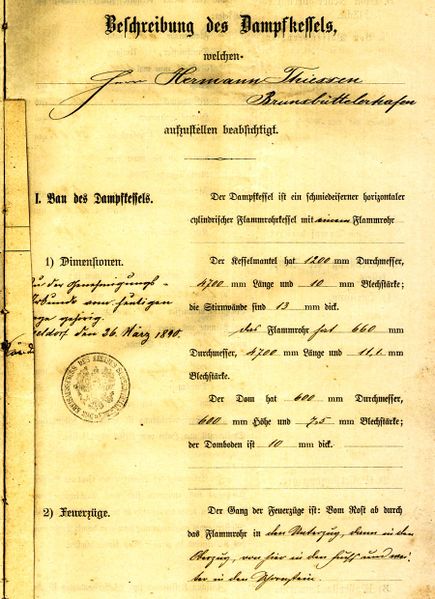 Beschreibung des Dampfkessels,
welchen
Herr Hermann Thiessen
Brunsbüttelerhafen
aufzustellen beabsichtigt.
I. Bau des Dampfkessels.
Der Dampfkessel ist ein schmiedeiserner horizontaler
cylindrischer Flammrohrkessel mit einem Flammrohr
1) Dimensionen.
Der Kesselmantel hat 1200 mm Durchmesser,
4700 mm Länge und 10 mm Blechstärke;
die Stirnwände sind 13 mm dick.
Das Flammrohr hat 660 mm
Durchmesser, 4700 mm Länge und 11,1 mm
Blechstärke.
Der Dom hat 600 mm Durchmesser,
600 mm Höhe und 7,5 mm Blechstärke;
der Domboden ist 10 mm dick.
zu der Genehmigungs-
Urkunde vom heutigen
gehörig.
eldorf den 26. März 1890.
2) Feuerzüge.
Der Gang der Feuerzüge ist: Vom Rost ab durch
das Flammrohr in den Unterzug, dann in den
Oberzug, von hier in den Fuchs und wei-
ter in den Schornstein.